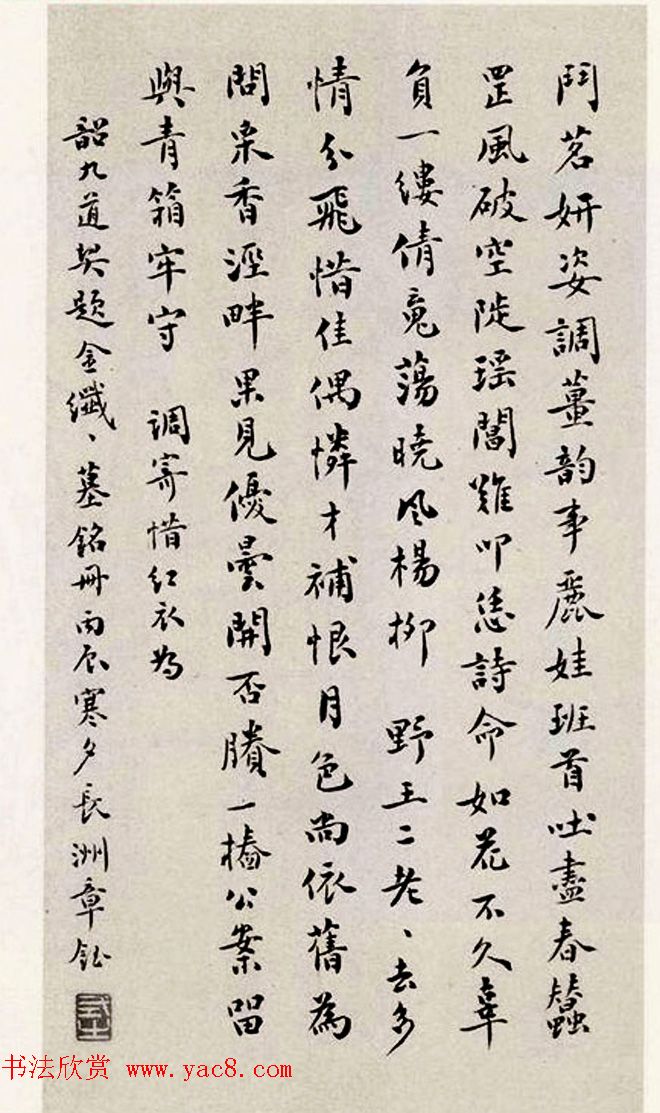 鬥茗妍姿調薑韵事麗娃班首吐盡春蠶
罡風破空陡瑤閶難叩恁詩命如花不久辜
負一縷倩䰟蕩曉風楊柳 野王二老、去多
情分飛惜佳偶憐才補恨月色尚依舊為
問采香涇畔果見優曇開否賸一樁公案留
與青箱牢守 調寄惜紅衣為
韶九道契題金纖、墓銘冊丙辰寒夕長洲章鈺
式之
书法欣赏 www.yac8.com